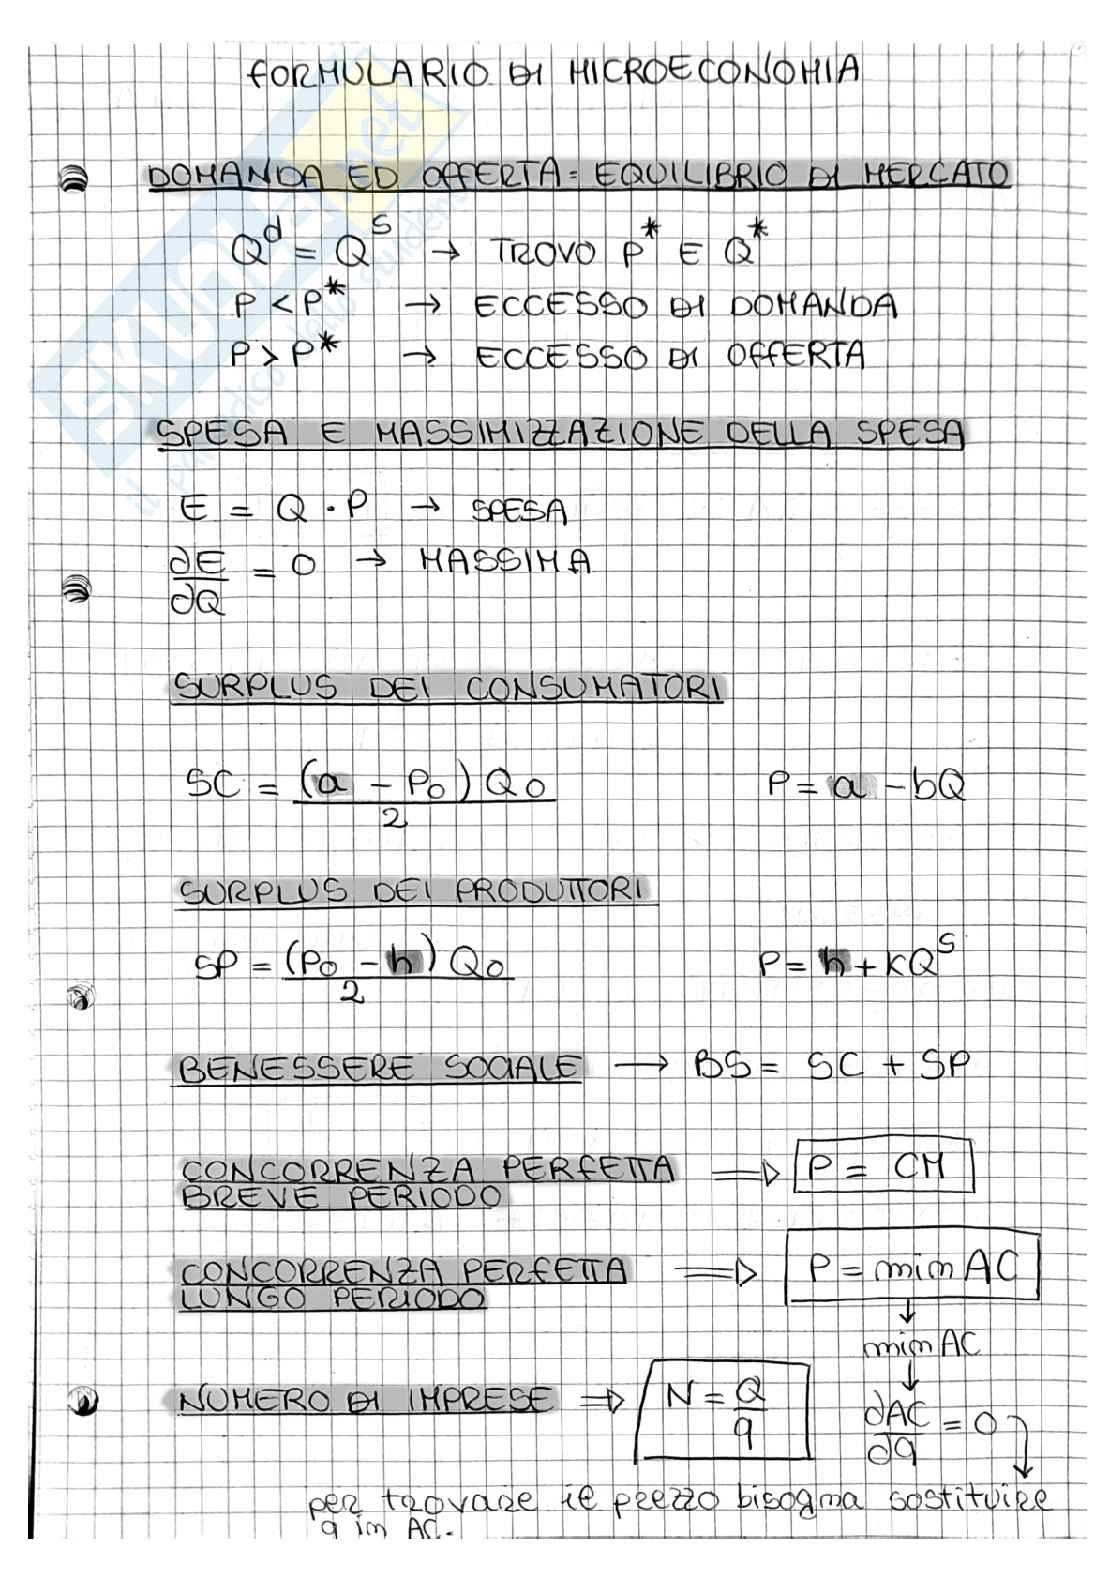 FORMULARIO DI MICROECONOMIA
DOMANDA ED OFFERTA: EQUILIBRIO DI MERCATO
Q^d = Q^S → TROVO P* E Q*
P < P* → ECCESSO DI DOMANDA
P > P* → ECCESSO DI OFFERTA
SPESA E MASSIMIZZAZIONE DELLA SPESA
E = Q · P → SPESA
∂E/∂Q = 0 → MASSIMA
SURPLUS DEI CONSUMATORI
SC = (a - P₀) Q₀ / 2 P = a - bQ
SURPLUS DEI PRODUTTORI
SP = (P₀ - h) Q₀ / 2 P = h + kQ^S
BENESSERE SOCIALE → BS = SC + SP
CONCORRENZA PERFETTA ⇒ P = CM
BREVE PERIODO
CONCORRENZA PERFETTA ⇒ P = min AC
LUNGO PERIODO
↓
min AC
↓
NUMERO DI IMPRESE ⇒ N = Q/q ∂AC/∂q = 0
per trovare il prezzo bisogna sostituire
q in AC.
SKUOLA.net